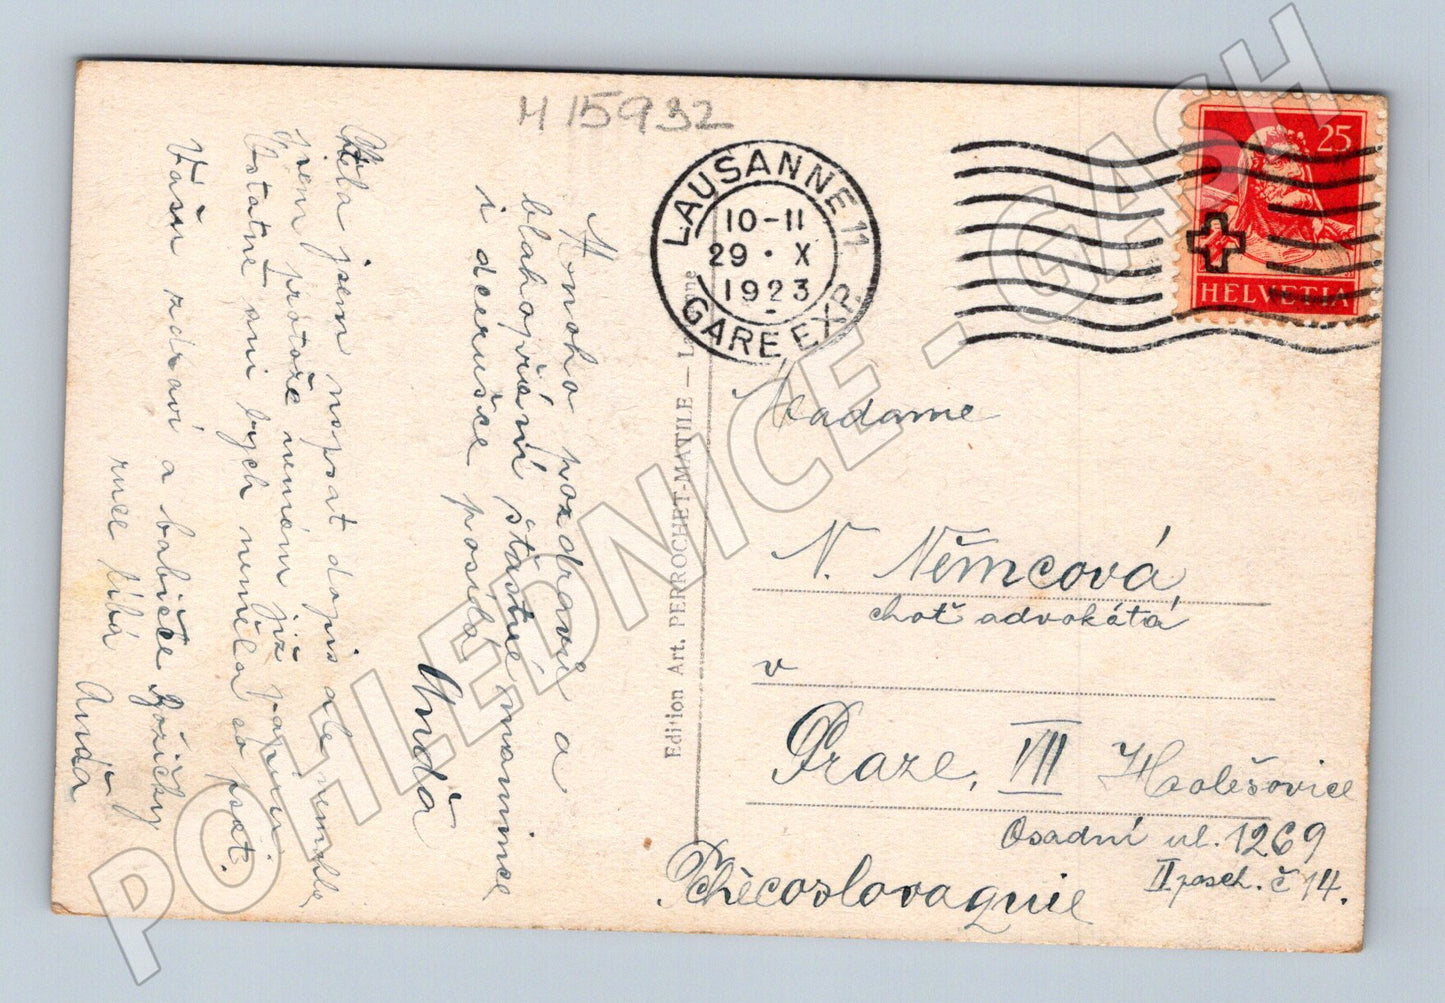 H 15932
LAUSANNE 11
10-11
29 · X
1923
GARE EXP.
25
HELVETIA
Mnoho pozdravů a
blahopřání šťastné mamince
i dcerušce posílá
Anda
Chtěla jsem napsat dopis ale nemohla
jsem protože nemám již papíru.
Ostatně ani bych neměla co psát.
Vám zdraví a babičce
ruce líbá Anda
Edition Art. PERROCHET-MATILE — L
Madame
N. Němcová,
choť advokáta
v
Praze, VII Holešovice
Osadní ul. 1269
II posch. č 14.
Tchècoslovaquie
POHLEDNICE - GASH